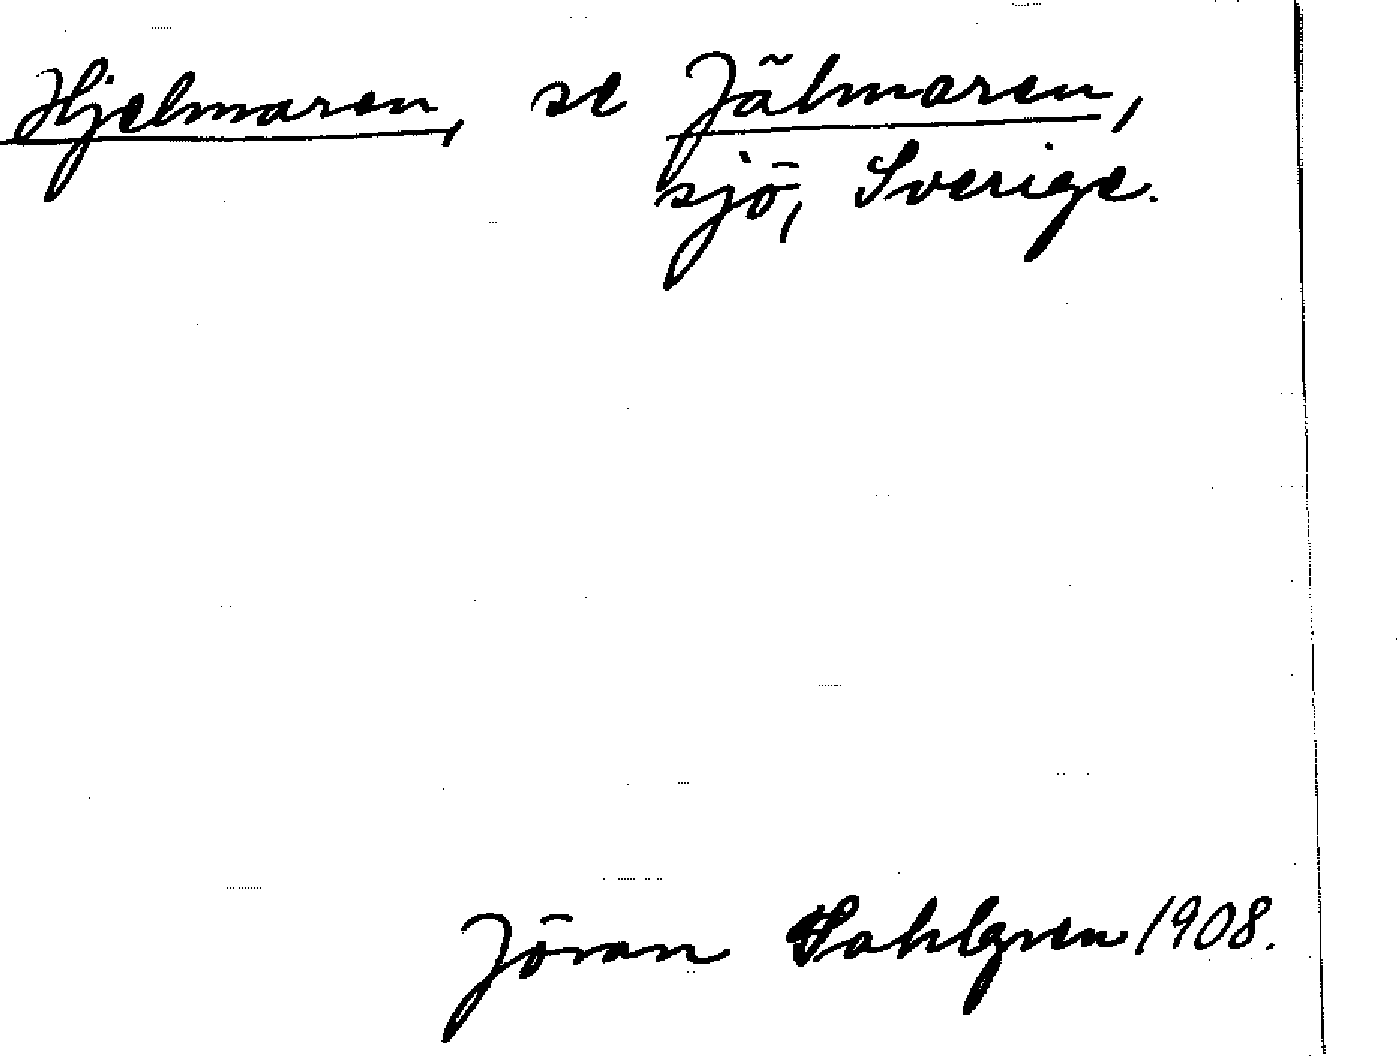 Hjelmaren, se Jälmaren,
sjö, Sverige.
Jöran Sahlgren 1908.